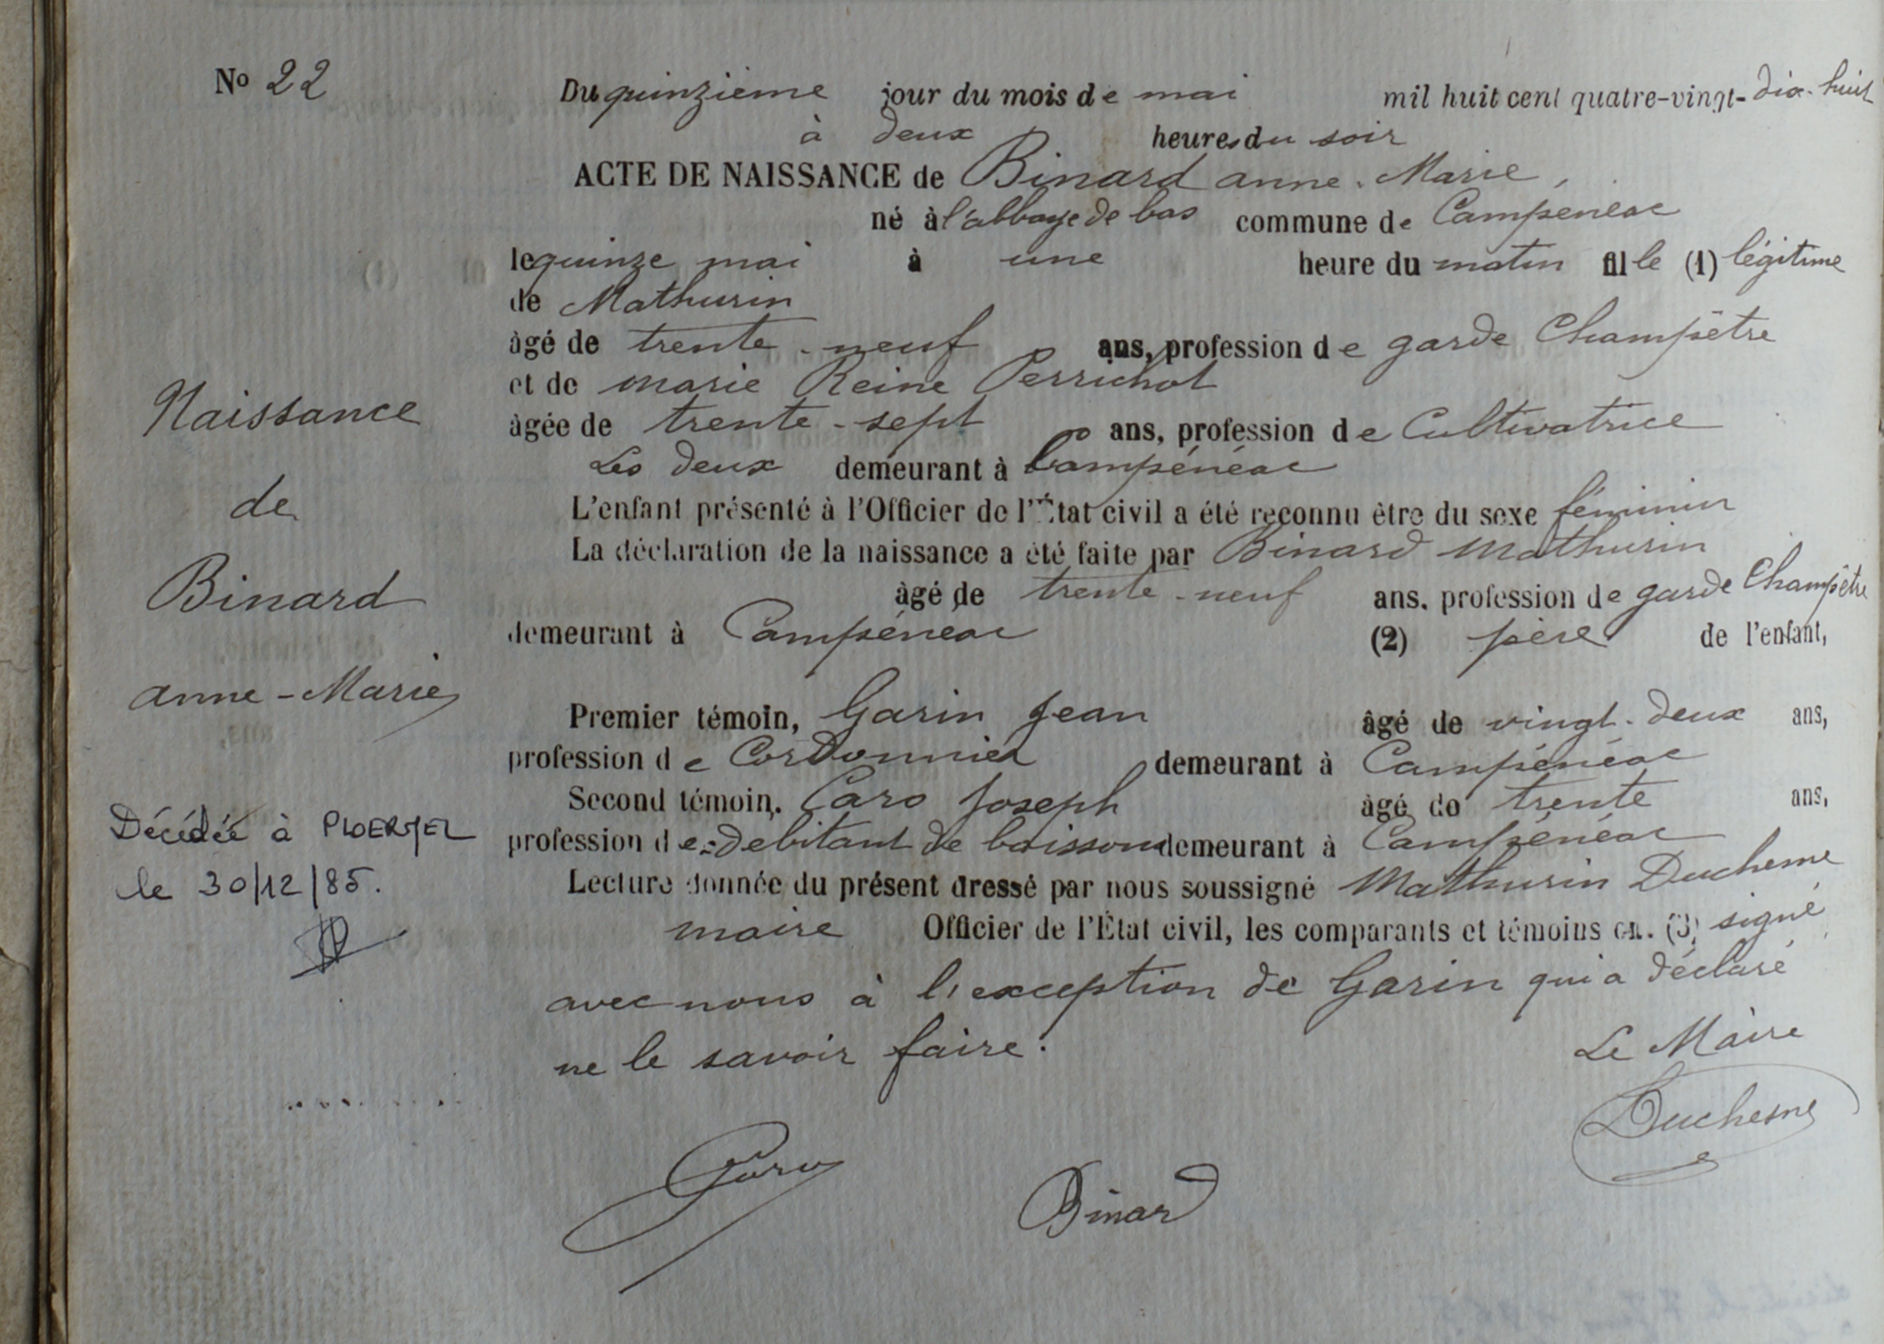 No 22
Du quinzième jour du mois de mai mil huit cent quatre-vingt-dix-huit
à deux heures du soir
ACTE DE NAISSANCE de Binard anne-Marie,
né à l'abbaye de bas commune de Campeneac
le quinze mai à une heure du matin fille (1) légitime
de Mathurin
âgé de trente-neuf ans, profession de garde Champêtre
et de marie Reine Perrichot
âgée de trente-sept ans, profession de Cultivatrice
Les deux demeurant à Campénéac
L'enfant présenté à l'Officier de l'État civil a été reconnu être du sexe féminin
La déclaration de la naissance a été faite par Binard Mathurin
âgé de trente-neuf ans, profession de garde Champêtre
demeurant à Campéneac (2) père de l'enfant,
Premier témoin, Garin Jean âgé de vingt-deux ans,
profession de Cordonnier demeurant à Campénéac
Second témoin, Caro Joseph âgé de trente ans,
profession de debitant de boissons demeurant à Campénéac
Lecture donnée du présent dressé par nous soussigné Mathurin Duchesne
maire Officier de l'État civil, les comparants et témoins on. (3) signé
avec nous à l'exception de Garin qui a déclaré
ne le savoir faire.
Le Maire
Duchesne
Caro
Binard
Naissance
de
Binard
anne-Marie
Décédée à PLOERMEL
le 30/12/85.